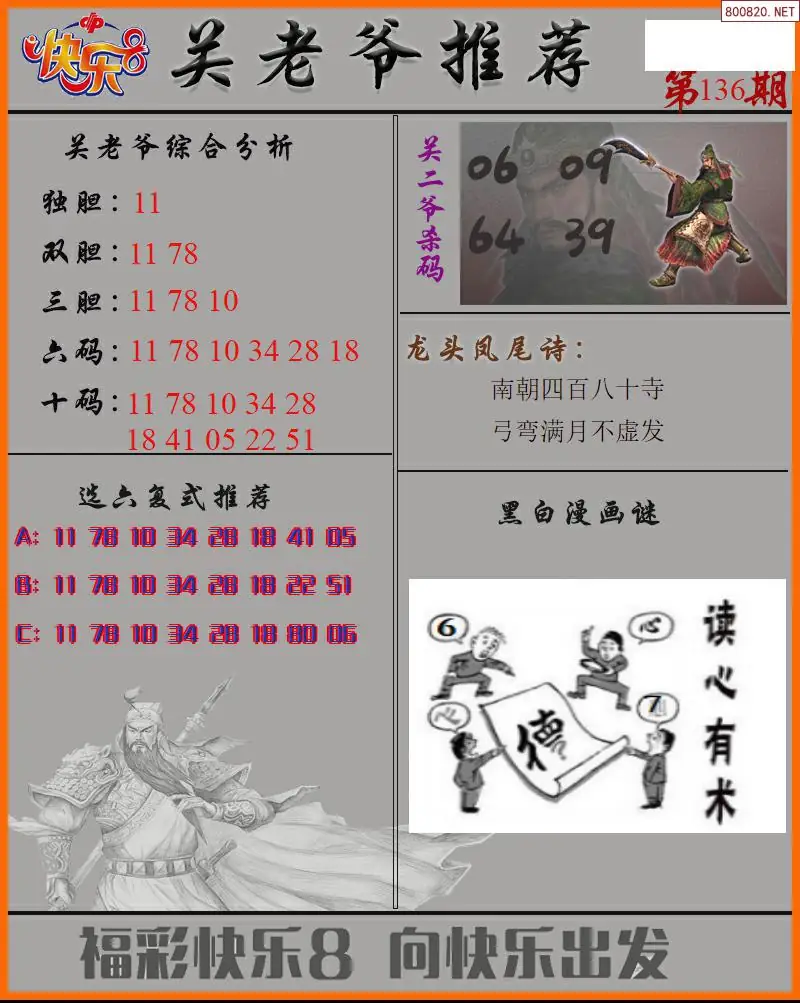 800820.NET
快乐8
关老爷推荐
第136期
关老爷综合分析
独胆：11
双胆：11 78
三胆：11 78 10
六码：11 78 10 34 28 18
十码：11 78 10 34 28
18 41 05 22 51
关二爷杀码
06 09
64 39
龙头凤尾诗：
南朝四百八十寺
弓弯满月不虚发
选六复式推荐
A: 11 78 10 34 28 18 41 05
B: 11 78 10 34 28 18 22 51
C: 11 78 10 34 28 18 80 06
黑白漫画谜
6
心
心
7
德
读心有术
福彩快乐8 向快乐出发